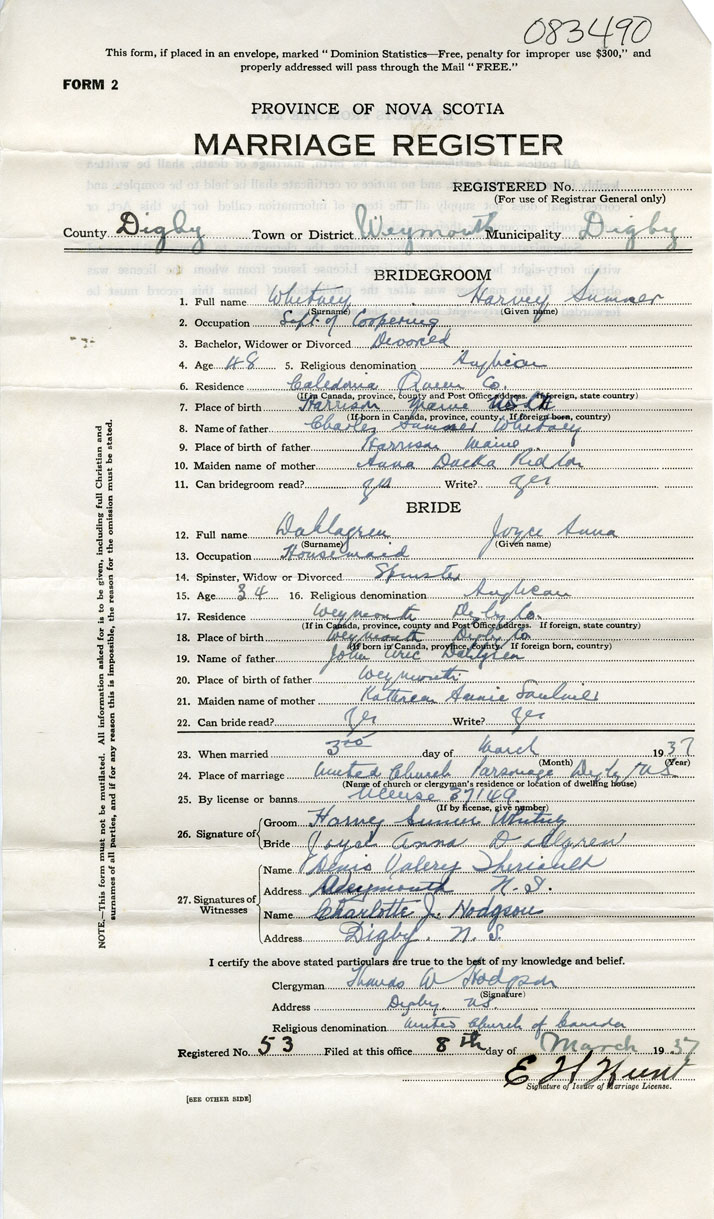 083490
This form, if placed in an envelope, marked "Dominion Statistics—Free, penalty for improper use $300," and
properly addressed will pass through the Mail "FREE."
FORM 2
PROVINCE OF NOVA SCOTIA
MARRIAGE REGISTER
REGISTERED No.
(For use of Registrar General only)
County Digby Town or District Weymouth Municipality Digby
BRIDEGROOM
1. Full name Whitney Harvey Sumner
(Surname) (Given name)
2. Occupation Supt of Coopering
3. Bachelor, Widower or Divorced Divorced
4. Age 48 5. Religious denomination Anglican
6. Residence Caledonia Queen Co.
(If in Canada, province, county and Post Office address. If foreign, state country)
7. Place of birth Harrison Maine U.S.A
(If born in Canada, province, county. If foreign born, country)
8. Name of father Charles Sumner Whitney
9. Place of birth of father Harrison Maine
10. Maiden name of mother Anna Ridlon
11. Can bridegroom read? yes Write? yes
BRIDE
12. Full name Dahlgren Joyce Anna
(Surname) (Given name)
13. Occupation Housemaid
14. Spinster, Widow or Divorced Spinster
15. Age 34 16. Religious denomination Anglican
17. Residence Weymouth Digby Co.
(If in Canada, province, county and Post Office address. If foreign, state country)
18. Place of birth Weymouth Digby Co
(If born in Canada, province, county. If foreign born, country)
19. Name of father John Eric Dahlgren
20. Place of birth of father Weymouth
21. Maiden name of mother Annie Saulnier
22. Can bride read? Yes Write? Yes
23. When married 3rd day of March 1937
(Month) (Year)
24. Place of marriage United Church Parsonage Digby N.S.
(Name of church or clergyman's residence or location of dwelling house)
25. By license or banns License 37149
(If by license, give number)
26. Signature of Groom Harvey Sumner Whitney
Bride Joyce Anna Dahlgren
27. Signatures of Witnesses
Name Denis Valery Theriault
Address Weymouth N.S.
Name Charlotte J. Hodgson
Address Digby. N.S.
I certify the above stated particulars are true to the best of my knowledge and belief.
Clergyman Thomas W Hodgson
(Signature)
Address Digby N.S.
Religious denomination United Church of Canada
Registered No. 53 Filed at this office 8th day of March 1937
E H Hunt
Signature of Issuer of Marriage License.
[SEE OTHER SIDE]
NOTE.—This form must not be mutilated. All information asked for is to be given, including full Christian and
surnames of all parties, and if for any reason this is impossible, the reason for the omission must be stated.